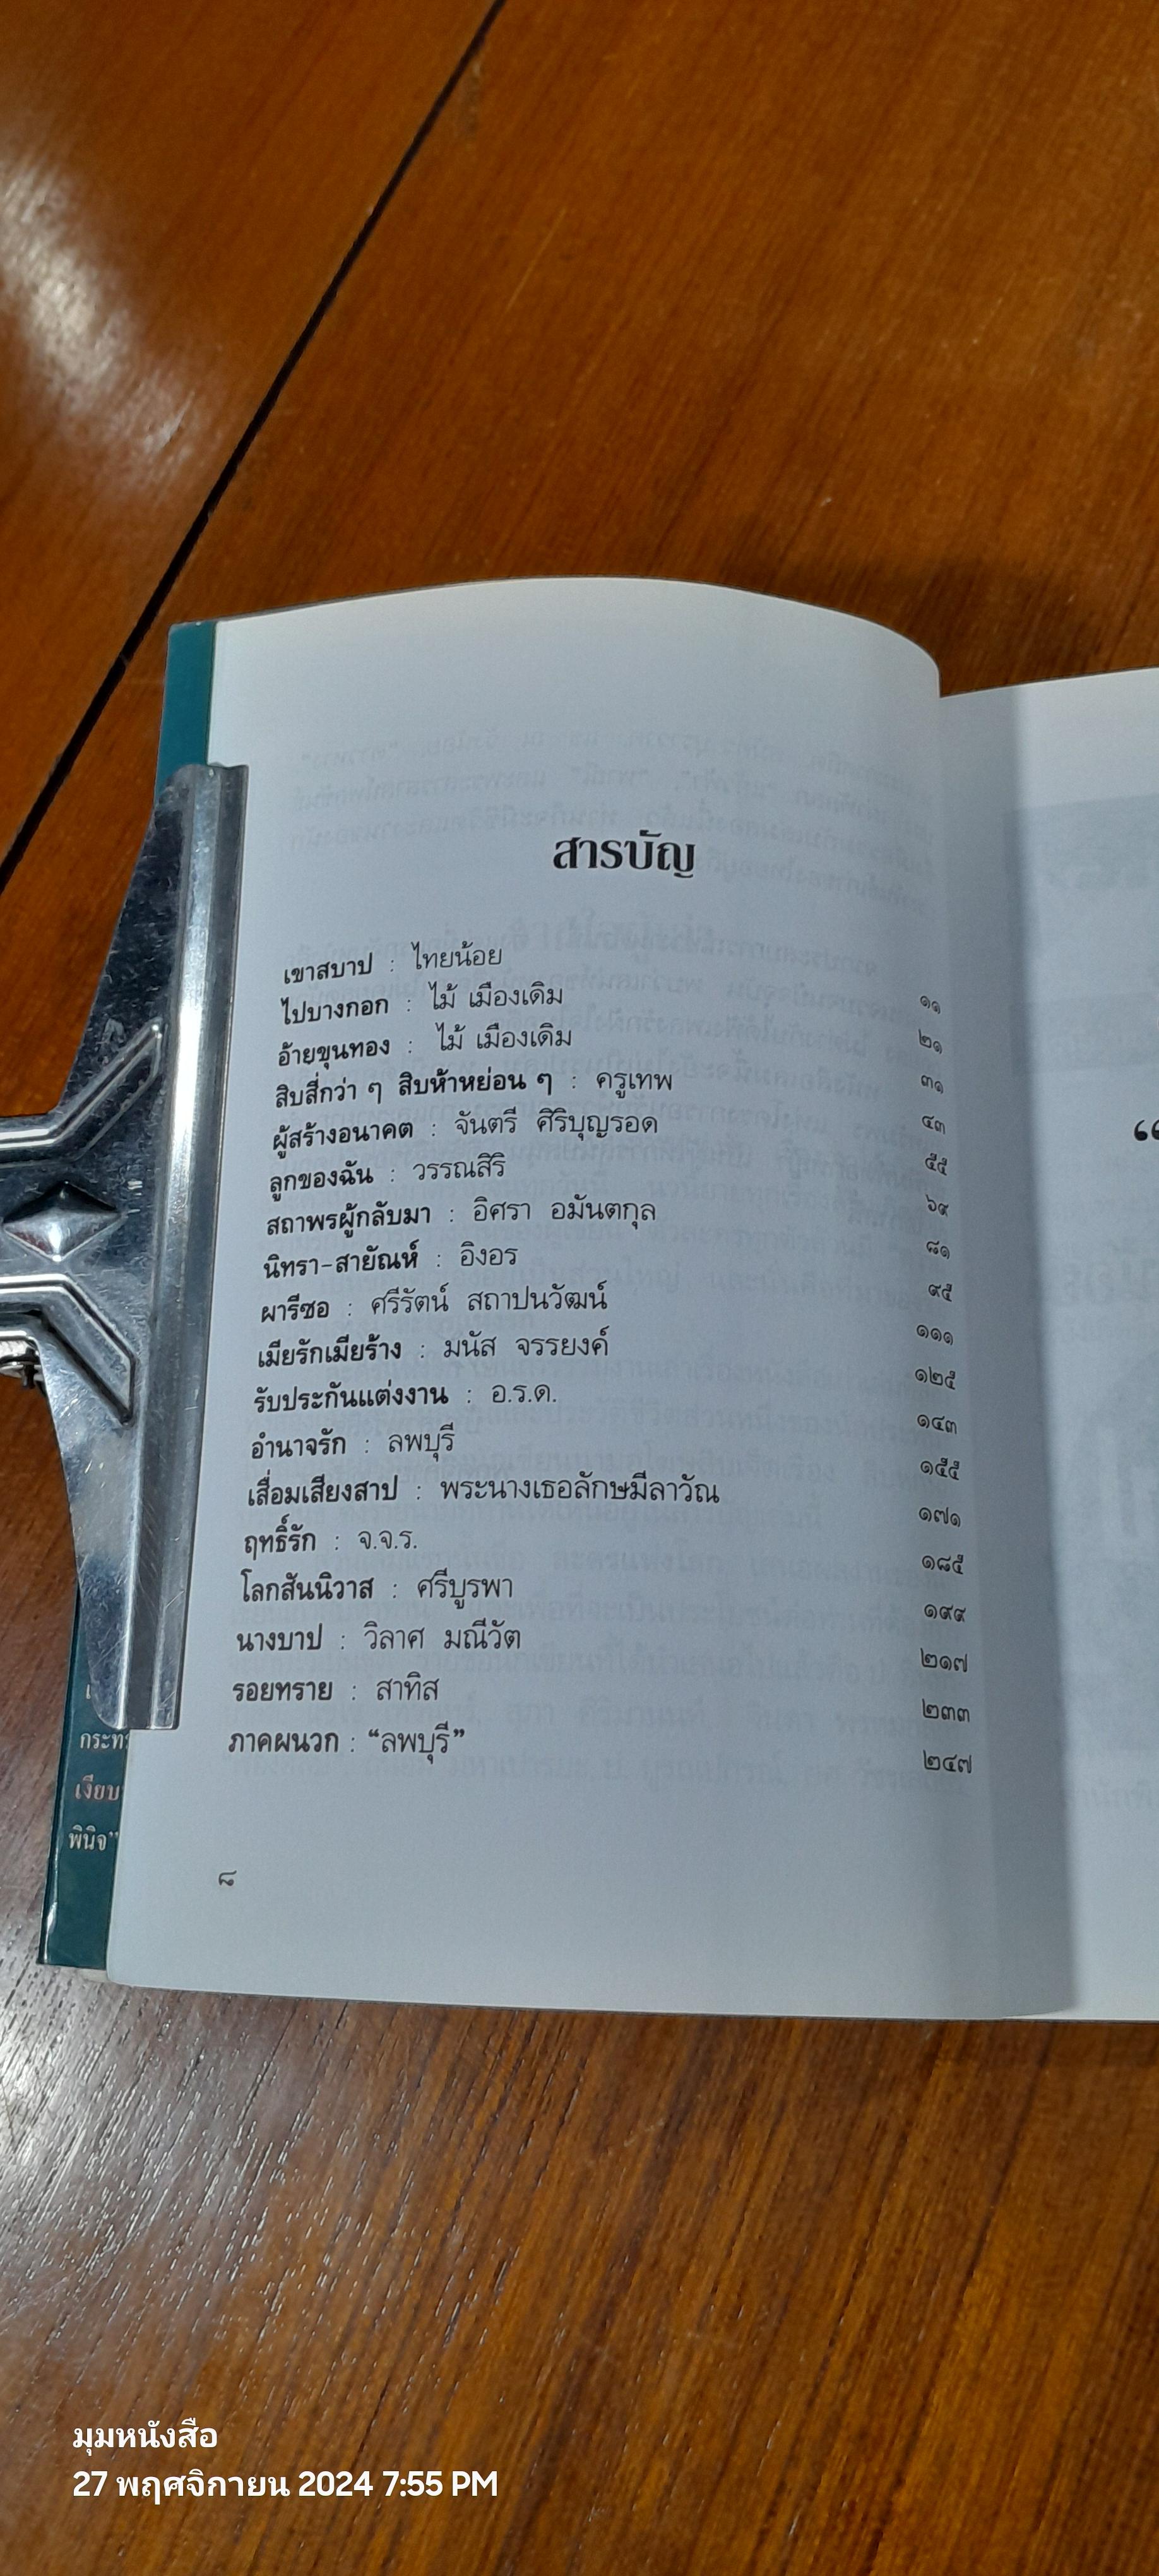 สารบัญ
เขาสบาป : ไทยน้อย ๑๑
ไปบางกอก : ไม้ เมืองเดิม ๒๑
อ้ายขุนทอง : ไม้ เมืองเดิม ๓๑
สิบสี่กว่า ๆ สิบห้าหย่อน ๆ : ครูเทพ ๔๓
ผู้สร้างอนาคต : จันตรี ศิริบุญรอด ๕๕
ลูกของฉัน : วรรณสิริ ๖๙
สถาพรผู้กลับมา : อิศรา อมันตกุล ๘๑
นิทรา-สายัณห์ : อิงอร ๙๕
ผารีซอ : ศรีรัตน์ สถาปนวัฒน์ ๑๑๑
เมียรักเมียร้าง : มนัส จรรยงค์ ๑๒๕
รับประกันแต่งงาน : อ.ร.ด. ๑๔๓
อำนาจรัก : ลพบุรี ๑๕๕
เสื่อมเสียงสาป : พระนางเธอลักษมีลาวัณ ๑๗๑
ฤทธิ์รัก : จ.จ.ร. ๑๘๕
โลกสันนิวาส : ศรีบูรพา ๑๙๙
นางบาป : วิลาศ มณีวัต ๒๑๗
รอยทราย : สาทิส ๒๓๓
ภาคผนวก : “ลพบุรี” ๒๔๗
๘
กระท
เงียบ
พินิจ”
“
มุมหนังสือ
27 พฤศจิกายน 2024 7:55 PM